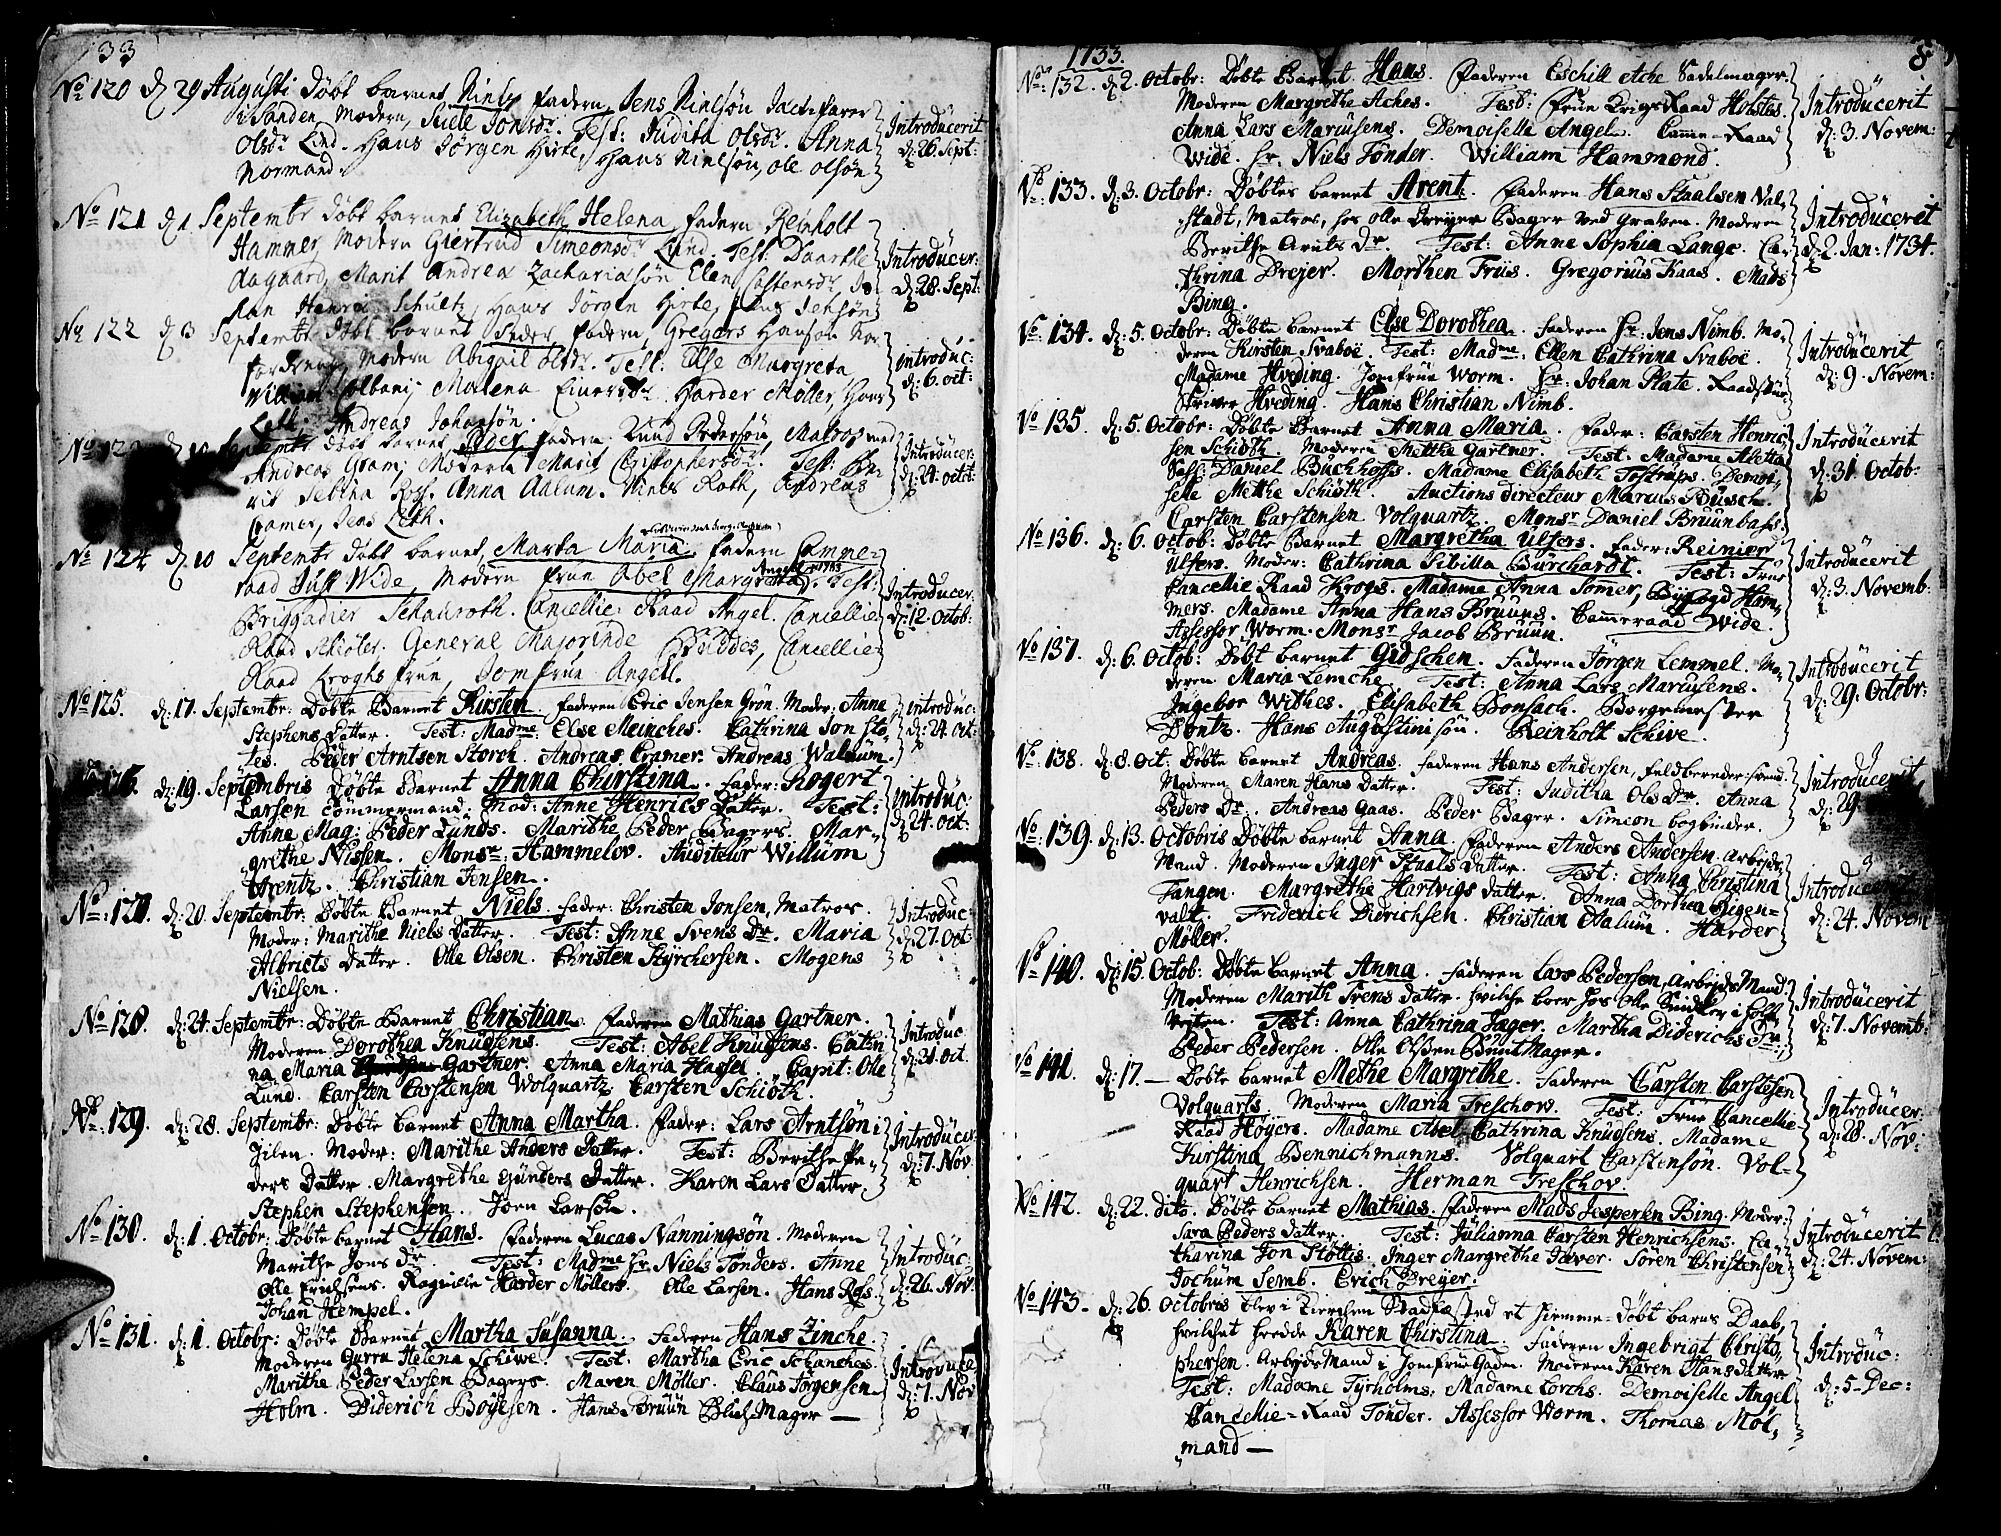 1733
No 120 d. 29 Augusti Døbt barnet Niels fadern, Jens Nielsøn
i Sanden, Modern, Siele Jonsdr. Test: Judita Olsdr. Anna
Olsdr Lind. Hans Jørgen Hirte, Hans Nielsøn, ole olsøn
Normand.
Introducerit
d: 26. Sept:
No 121 d 1 Septembr døbt barnet Elizabeth Helena fadern Reinholt
Hammer, Modern Giertrud Simeonsdr Lund. Test
Aagaard, Marit Andrea Zachariasøn Elen Castensdr Jo
han Henric Schultz, Hans Jørgen Hirte, Jens Jensøn
Introducer:
d: 28. Sept:
No 122 d 3 Septembr døbt barnet Peder, fadern, Gregers Hansøn
Modern Abigail olsdr. Test: Else Margreta
Malena Einersdr Harder Møller, Hans
Leth. Andreas Johansøn.
introduc:
d: 6. oct:
Septembr døbt barnet Peder fadern. Knud Pedersøn, Matros med
Andreas Gram, Moderen Marit Christophersdr. Test:
Anna Aalum. Niels Roth, Andreas
Cramer, Jens Leth.
Introducer:
d: 24. octob:
No 124 d. 10 Septembr døbt barnet, Marta Maria fadern Camme-
raad Just Wide, Modern frue Abel Margreta Angell. Test:
Briggadier Schnuroth. Cancellie Raad Angel. Cancellie
Raad Schiøler. General Majorinde Buddes, Cancellie
Raad Kroghs frue, Jomfrue Angell.
Introducer
d: 12. Octob:
No 125. d: 17. Septembr: Døbte Barnet Kirsten. faderen Eric Jensen Grøn. Moder: Anne
Stephens Datter. Test: Madme Else Meinches. Cathrina Jon Stø-
tes. Peder Arntsen Storch. Andreas Cramer. Andreas Walnum.
introduc:
d: 24 oct:
126. d: 19. Septembris Døbte Barnet Anna Chirstina. Fader: Rogert
Larsen Tømmermand. Mod: Anne Henrics Datter. Test:
Anne Mag: Peder Lunds. Marithe Peder Bagers. Mar-
grethe Nissen. Monsr. Hammelov. Auditeur Willum
Arentz. Christian Jensen.
introduc:
d: 24. oct:
No: 127. d: 20. Septembr: Døbte Barnet Niels. Fader: Christen Jonsen, Matros.
Moder: Marithe Niels Datter. Test: Anne Svens Dr. Maria
Albriets Datter. Olle Olsen. Christen Styrchersen. Mogens
Nielsen.
Introduc:
d: 27. Oct:
No 128. d: 24. Septembr: Døbte Barnet Christian. Faderen Mathias Gartner.
Moderen Dorothea Knudsens. Test: Abel Knudsens. Cathri
na Maria Gartner. Anna Maria Hassel. Capit: Olle
Lund. Carsten Carstensen Volquartz Carsten Schiøth.
Introduc:
d: 21. oct.
No: 129. d: 28. Septembr: Døbte Barnet Anna Martha. Fader: Lars Arntsøn i
Jilen. Moder: Marithe Anders Datter. Test: Berithe Pe-
ders Datter. Margrethe Gunders Datter. Karen Lars Datter.
Stephen Stephensen. Joen Larsøn.
Introducer
d: 7. Nov
No 130. d: 1. Octobr: Døbte Barnet Hans. Faderen Lucas Nanningsøn. Moderen
Marithe Jons Dr. Test: Madme Hr. Niels Tønders. Anne
Olle Erichsens. Harder Møllers. Olle Larsen. Hans Ross.
Johan Hempel.
Introduc:
d: 26. Nov
No 131. d: 1. Octobr: Døbte Barnet Martha Susanna. Faderen Hans Zinche.
Moderen Gurru Helena Schiwe. Test: Martha Eric Schanches.
Marithe Peder Larsen Bagers. Maren Møller. Claus Jørgensen
Holm. Diderich Boyesen. Hans Bruun
Introduce
d: 7. Nov
1733. 8
No: 132. d: 2. Octobr: Døbte Barnet Hans. Faderen Eschill Ache Sadelmager.
Moderen Margrethe Aches. Test: Frue Krigs Raad Holstes.
Anna Lars Marcusens. Demoiselle Angel. Camme-Raad
Wide. Hr. Niels Tønder. William Hammond.
Introducerit
d: 3. Novem:
No: 133. d: 3. Octobr: Døbtes barnet Arent. Faderen Hans Staalsen Val-
stadt, Matros, hos olle Dreyer Bager ved Graven. Moderen
Berithe Arnts Dr. Test: Anne Sophia Lange. Ca-
thrina Drejer. Morthen Friis. Gregorius Kaas. Mads
Bing.
Introducerit
d: 2. Jan: 1734.
No: 134. d: 5. Octobr: Døbte barnet Else Dorothea. Faderen Hr. Jens Nimb. Mo-
deren Kirsten Svaboe. Test: Madme: Ellen Cathrina Svaboe.
Madame Hveding. Jomfrue Worm. Hr: Johan Plate. Raadstue
Skriver Hveding. Hans Christian Nimb.
Introducerit
d: 9. Novem:
No 135. d: 5. Octobr: Døbte Barnet Anna Maria. Fader: Carsten Henric-
sen Schiøth. Moderen Metthe Gartner. Test: Madame Aletta
Sal: Daniel Buchhofss. Madame Elisabeth Tostrups. Demoi-
selle Methe Schiøth. Auctions directeur Marcus Busch.
Carsten Carstensen Volquartz. Monsr Daniel Bruunbass.
Introducerit
d: 31. Octob:
No 136. d: 6. Octob: Døbte Barnet Margretha Ulfers. Fader: Reinier
Ulfers. Moder: Cathrina Sibilla Burchardt. Test: Frue
Cancellie Raad Krogs. Madame Anna Somer, Byfogd Ham-
mers. Madame Anna Hans Bruuns. Cammeraad Wide.
Assessor Worm. Monsr Jacob Bruun.
Introducerit
d: 3. Novemb:
No 137. d: 6. Octob: Døbt barnet Gidschen. Faderen Jørgen Lemmel. Mo-
deren Maria Lemche. Test: Anna Lars Marcusens.
Ingebor Withes. Elisabeth Bonsach. Borgemester
Dontz. Hans Augustinisøn. Reinholt Schive.
Introducerit
d: 29. Octobr:
No: 138. d: 8. Oct: Døbte barnet Andreas. Faderen Hans Andersen, feldbereder-svend.
Moderen Maren Hans Datter. Test: Juditha Ols Dr. Anna
Peders Dr. Andreas Gaas. Peder Bager. Simeon bogbinder.
Introducerit
d: 29
No: 139. d: 13. Octobris Døbte barnet Anna Faderen Anders Andersen. Arbejds
Mand. Moderen Inger Staals Datter. Test: Anna Christina
Tangen. Margrethe Hartvigs datter. Anna Dorthea Bigen-
valt. Friderich Didrichsen. Christian Walum. Harder
Møller.
Introducerit
d: 24. Novem
No 140. d: 15. Octob: Døbte barnet Anna. Faderen Lars Pedersen, Arbejds Mand.
Moderen Marith Svens datter. hvilche boer hos olle
Test: Anna Cathrina Jager. Martha Diderichs Dr.
Peder Pedersen. Olle Olsen Buntmager.
Introducerit
d: 7. Novemb:
No 141. d: 17. — Døbte barnet Methe Margrethe. Faderen Carsten Carstesen
Volquarts. Moderen Maria Treschow. Test: Frue Cancellie-
Raad Høyers. Madame Abel Cathrina Knudsens. Madame
Kirstina Bennichmanns. Volquart Carstensøn. Vol-
quart Henrichsen. Herman Treschov.
Introducer:
d: 28. Nov:
No: 142. d: 22. dito. Døbte Barnet Mathias. Faderen Mads Jespersen Bing. Moder:
Sara Peders datter. Test: Julianna Carsten Henrichsens. Ca-
tharina Jon Støttis. Inger Margrethe Jæver. Søren Christensen
Jochum Semb. Erich Breyer.
Introducerit
d: 24. Novem:
No 143. d: 26. Octobris blev i Kierchen Stadfæsted et hiemme-døbt barns Daab,
hvilchet hedde Karen Chirstina. Faderen Ingebrigt Christo-
phersen. Arbejds Mand i Jomfrue Gaden. Moderen Karen Hansdatter
Test: Madame Tyrholms. Madame Lorchs. Demoiselle Angel
Cancellie-Raad Tønder. Assessor Worm. Thomas Mol-
mand —
Introduc:
d: 5 Dec: